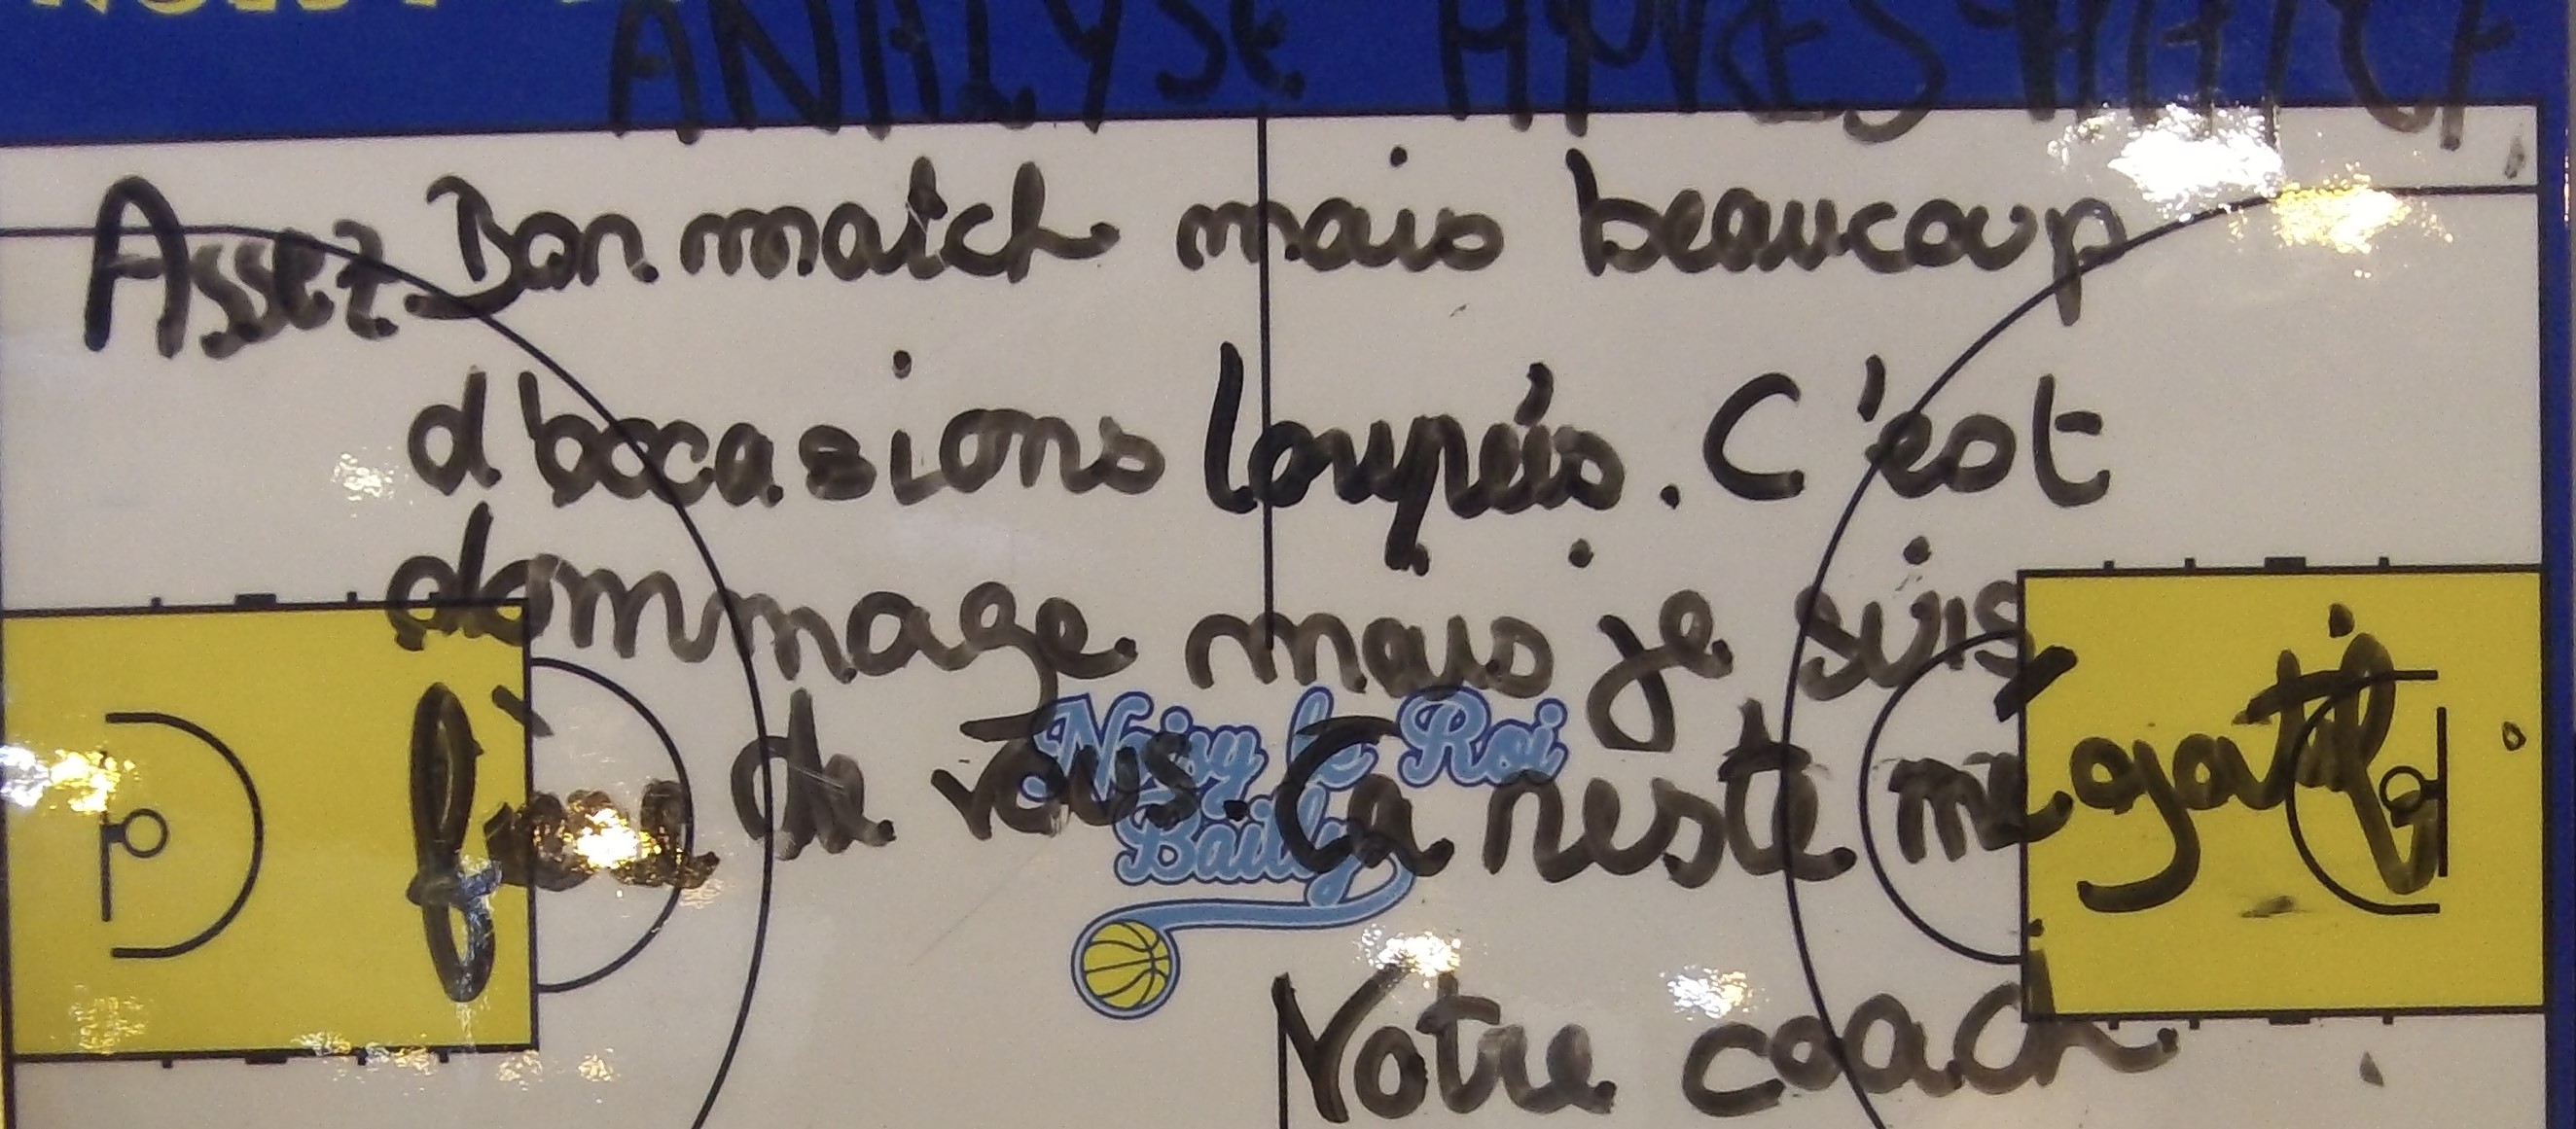 ANALYSE APRES MATCH
Assez Bon match mais beaucoup
d'occasions loupés. C'est
dommage mais je suis
fier de vous. Ca reste négatif.
Noisy le Roi
Bailly
Notre coach.